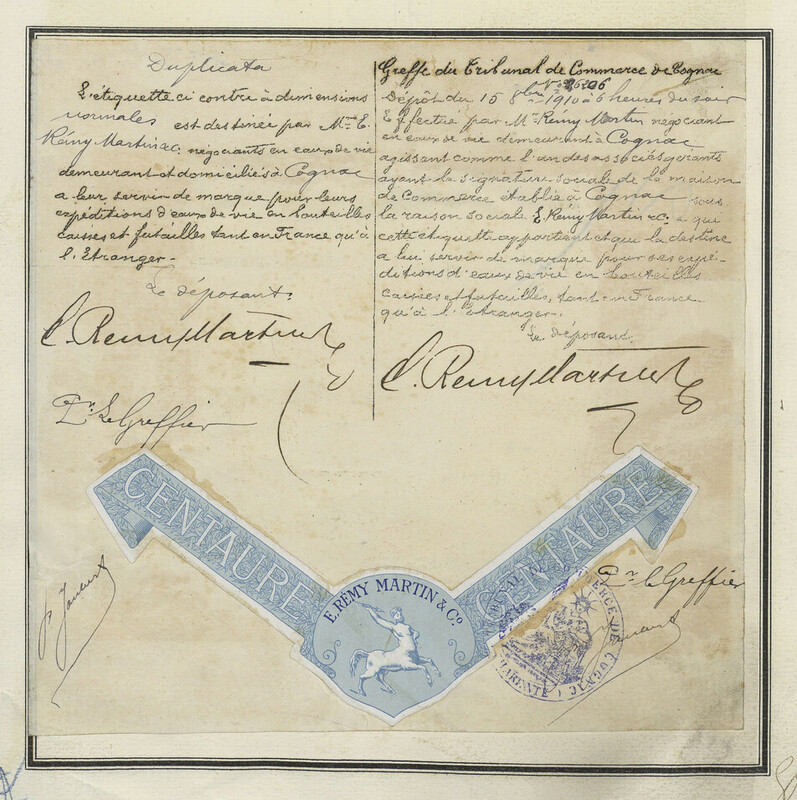 Duplicata
L'étiquette ci contre à dimensions
normales est destinée par Mrs E.
Rémy Martin &c. négociants en eaux de vie
demeurant et domiciliés à Cognac
a leur servir de marque pour leurs
expéditions d'eaux de vie en bouteilles
caisses et futailles tant en France qu'à
l'Etranger.-
Le déposant.
E. Remy Martin &c
Pr. Le Greffier
Greffe du Tribunal de Commerce de Cognac
Dépôt du 15 8bre 1910 à 6 heures du soir
Effectué par Mr. Rémy Martin négociant
en eaux de vie demeurant à Cognac
agissant comme l'un des associés gérants
ayant la signature sociale de la maison
de Commerce établie à Cognac sous
la raison sociale E. Rémy Martin &c. a qui
cette étiquette appartient et qui la destine
a lui servir de marque pour ses expé-
ditions d'eaux de vie en bouteilles
caisses et futailles, tant en France
qu'à l'Etranger.
Le déposant
E. Remy Martin &c
CENTAURE
CENTAURE
E. RÉMY MARTIN & Co.
Pr. le Greffier
TRIBUNAL DE COMMERCE DE COGNAC
CHARENTE